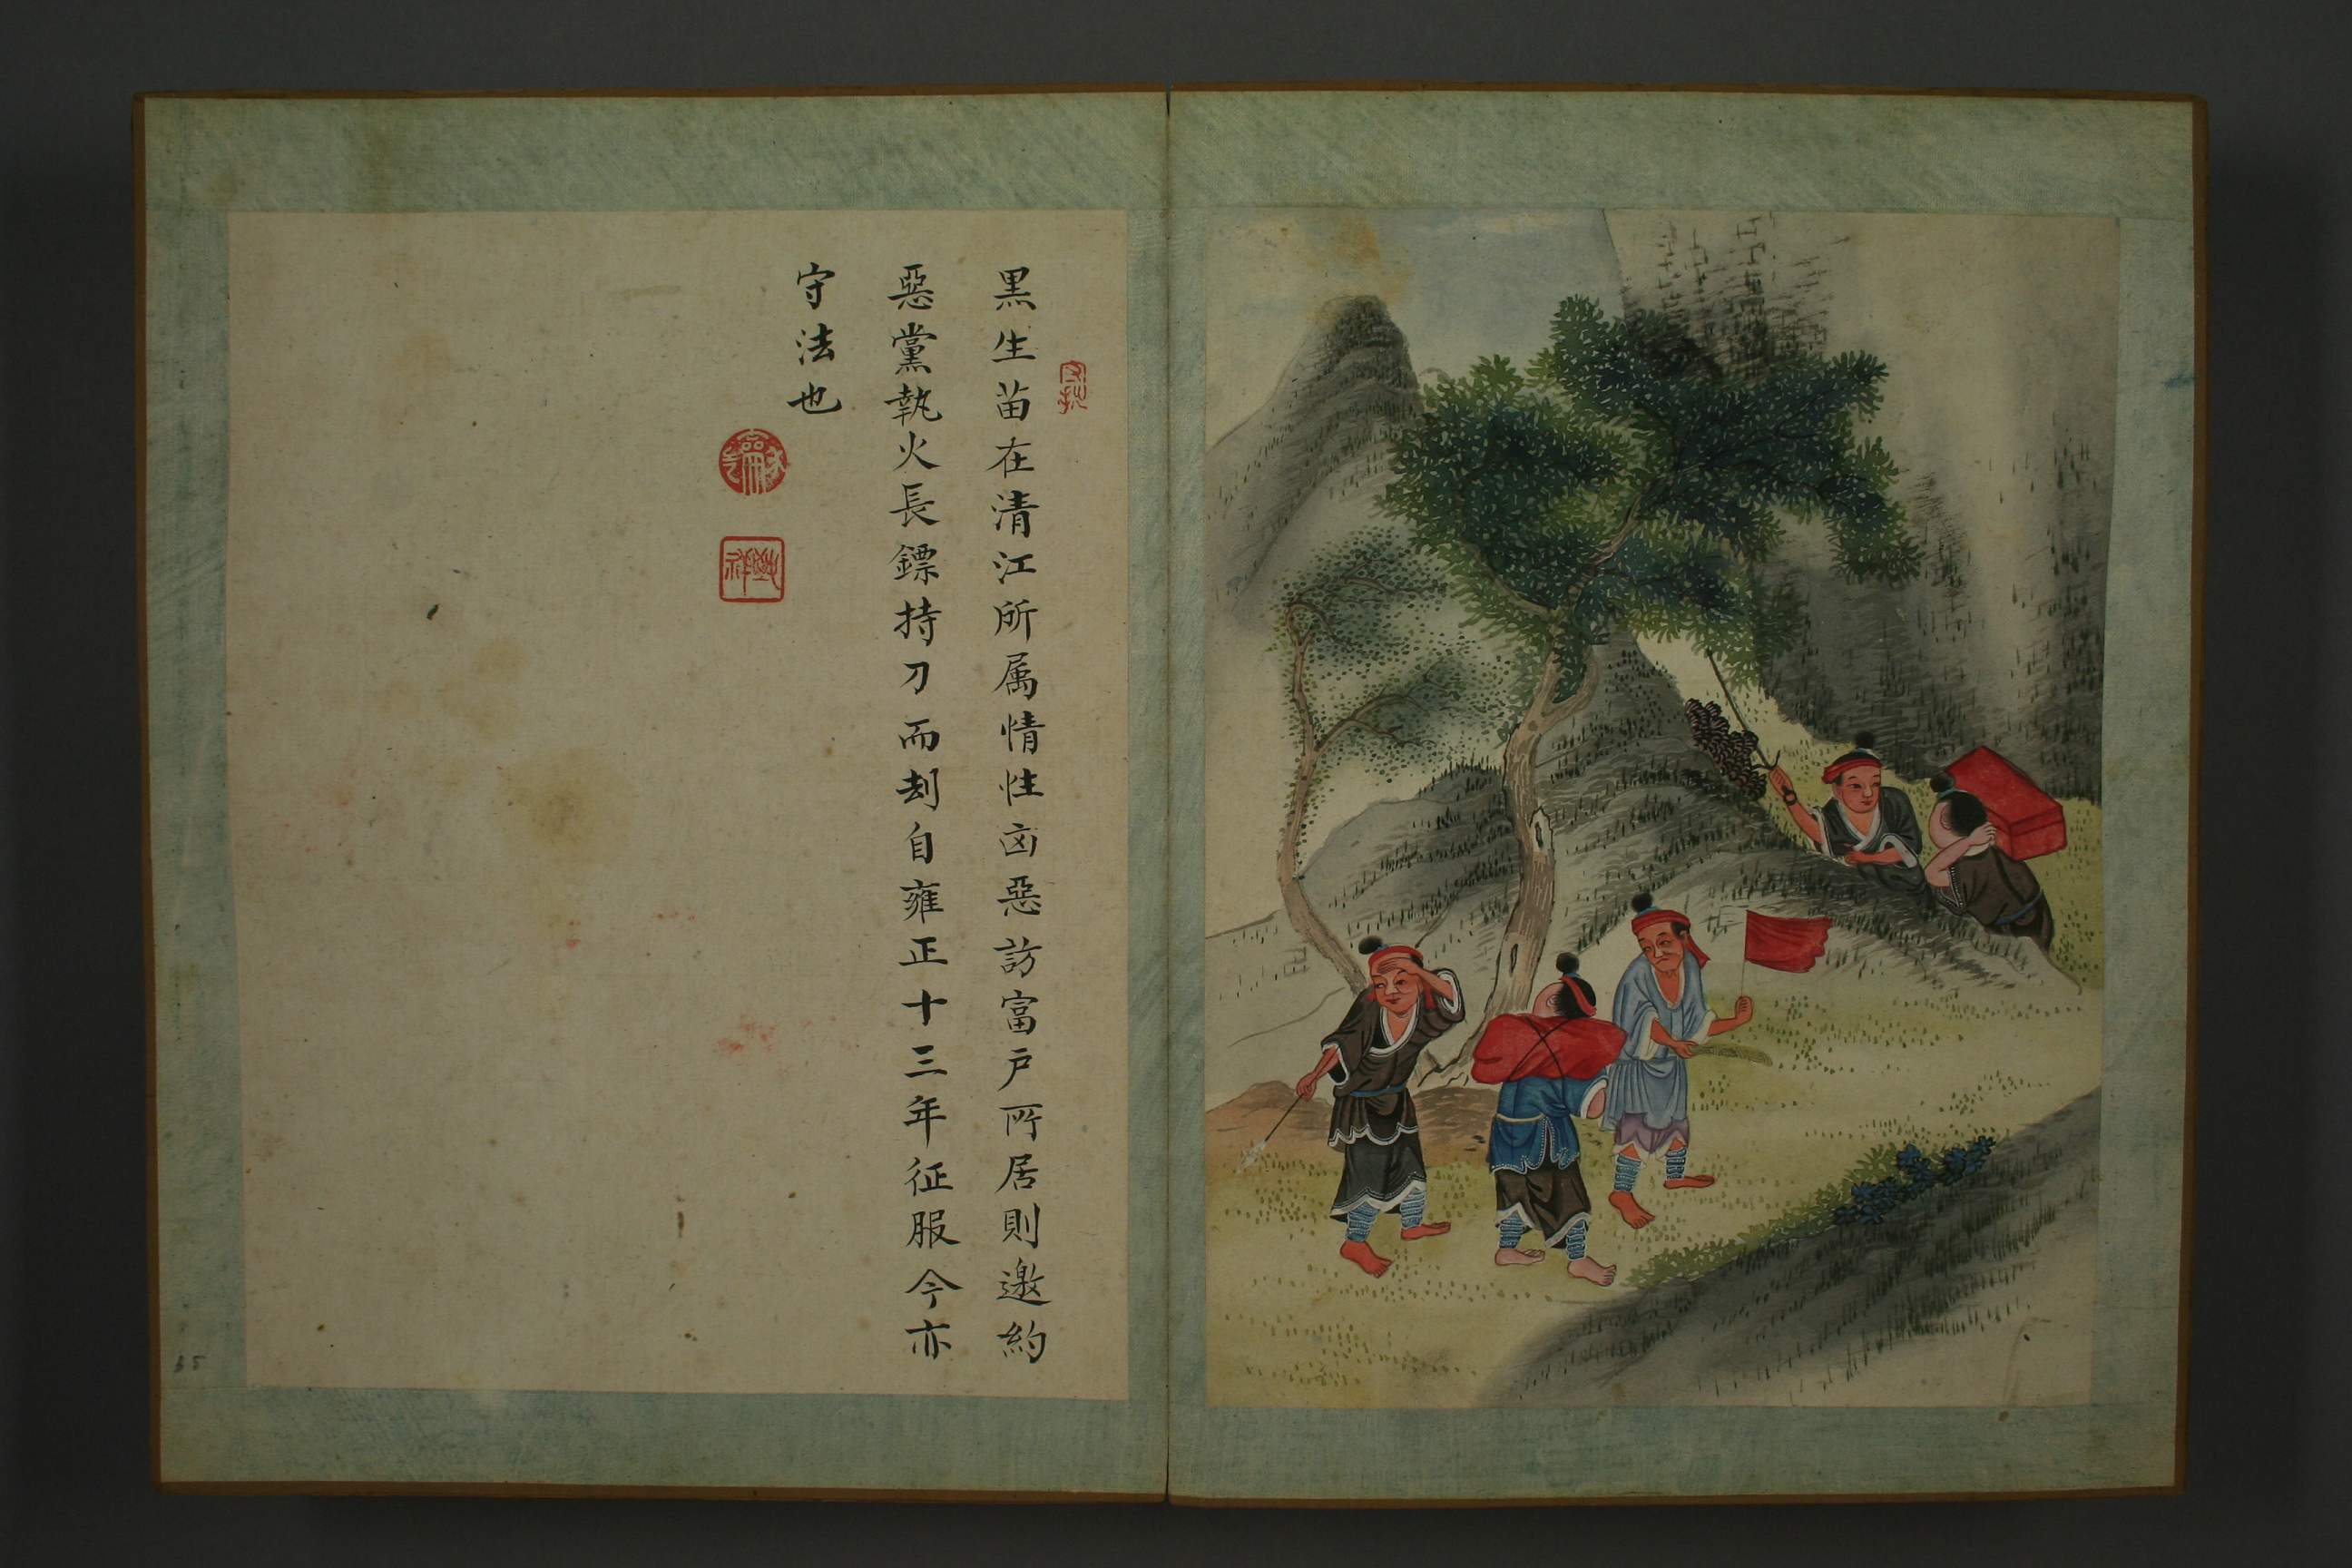 黒生苗在清江所属情性凶惡訪富戶所居則邀約
惡黨執火長鏢持刀而刼自雍正十三年征服今亦
守法也
35